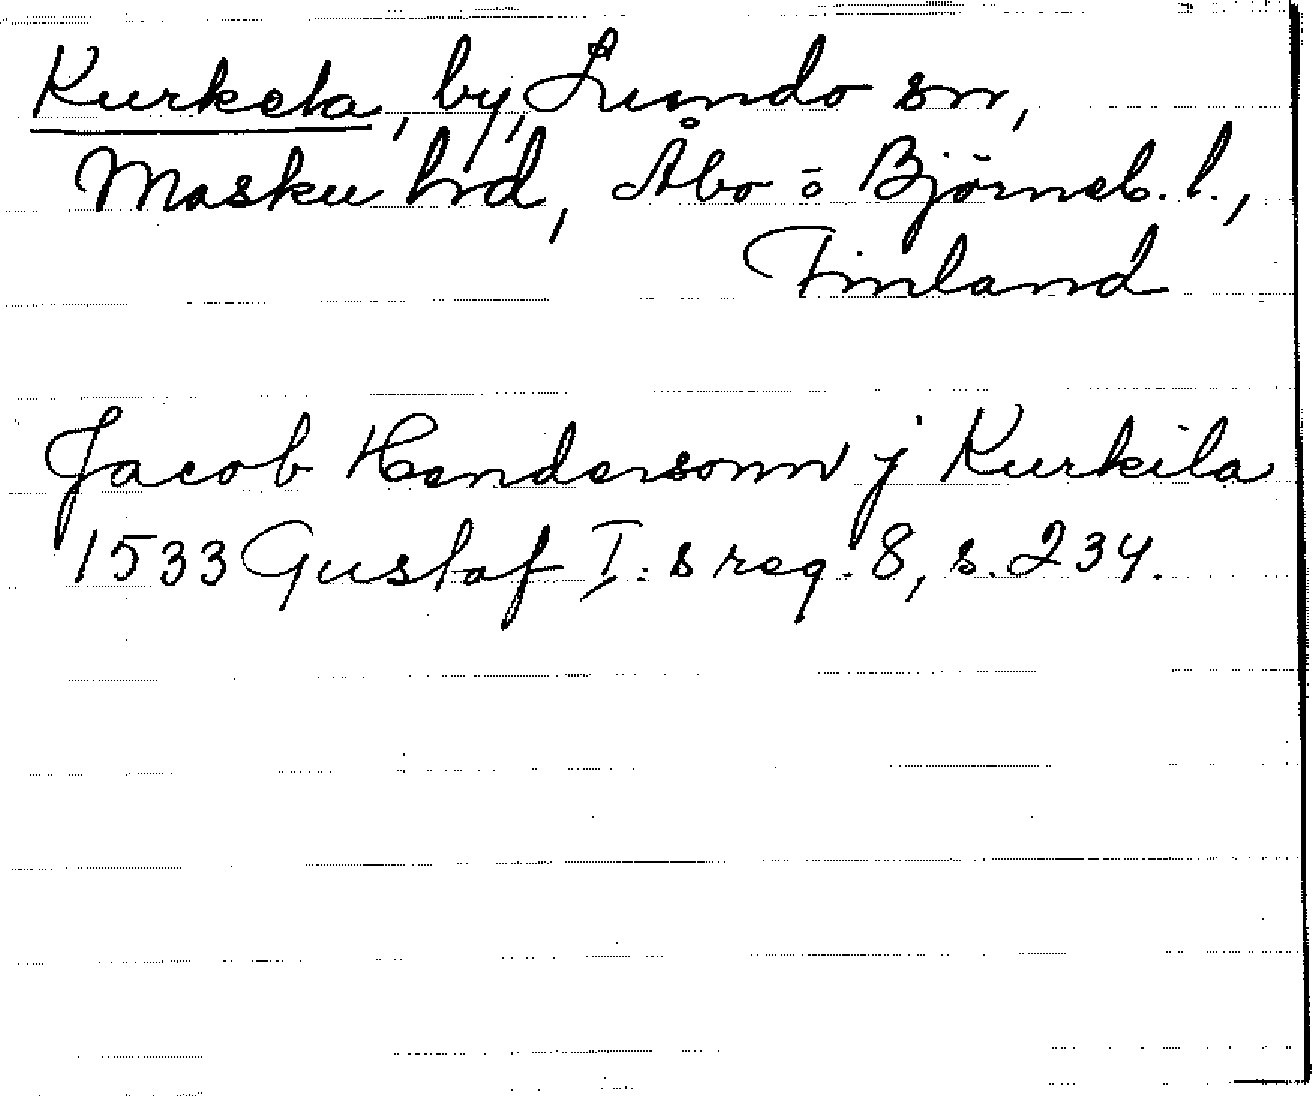 Kurkela, by, Lundo sn,
Masku hrd, Åbo o Björneb. l.,
Finland
Jacob Hendersonn j Kurkila
1533 Gustaf I:s reg. 8, s. 234.